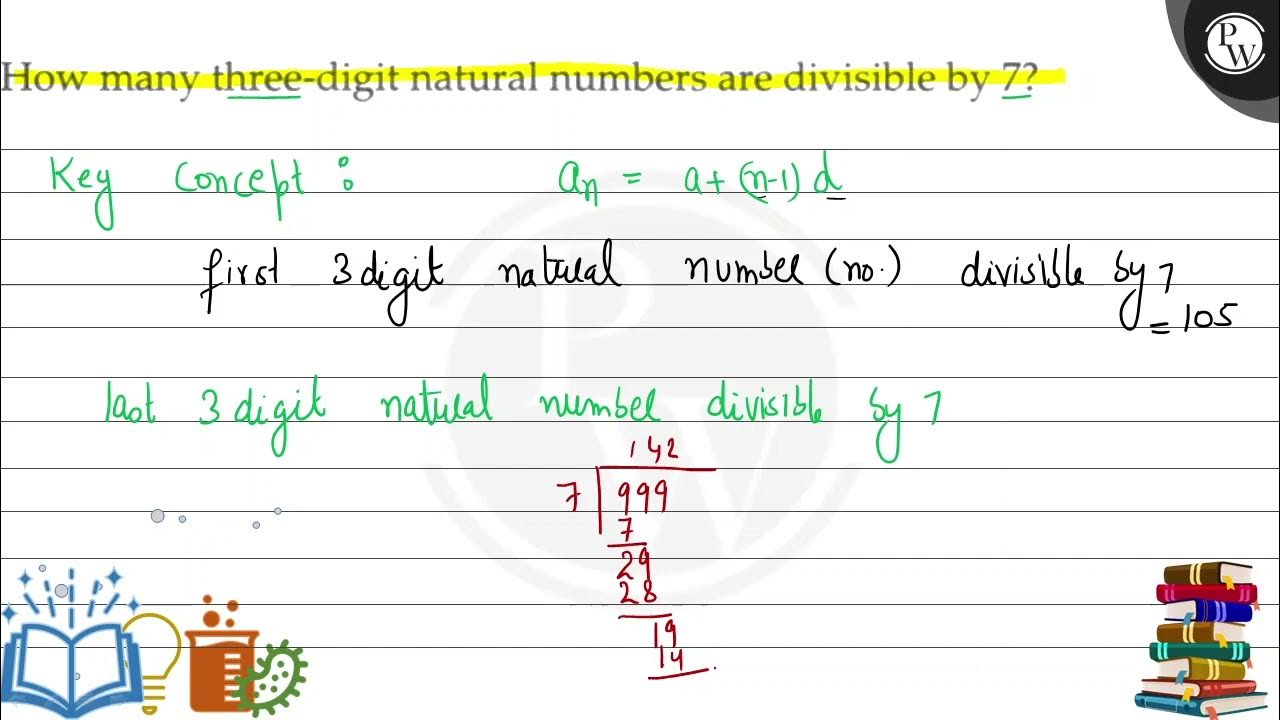 PW
How many three-digit natural numbers are divisible by 7?
Key Concept : aₙ = a + (n-1) d
first 3 digit natural number (no.) divisible by 7
= 105
last 3 digit natural number divisible by 7
142
7 999
7
29
28
19
14